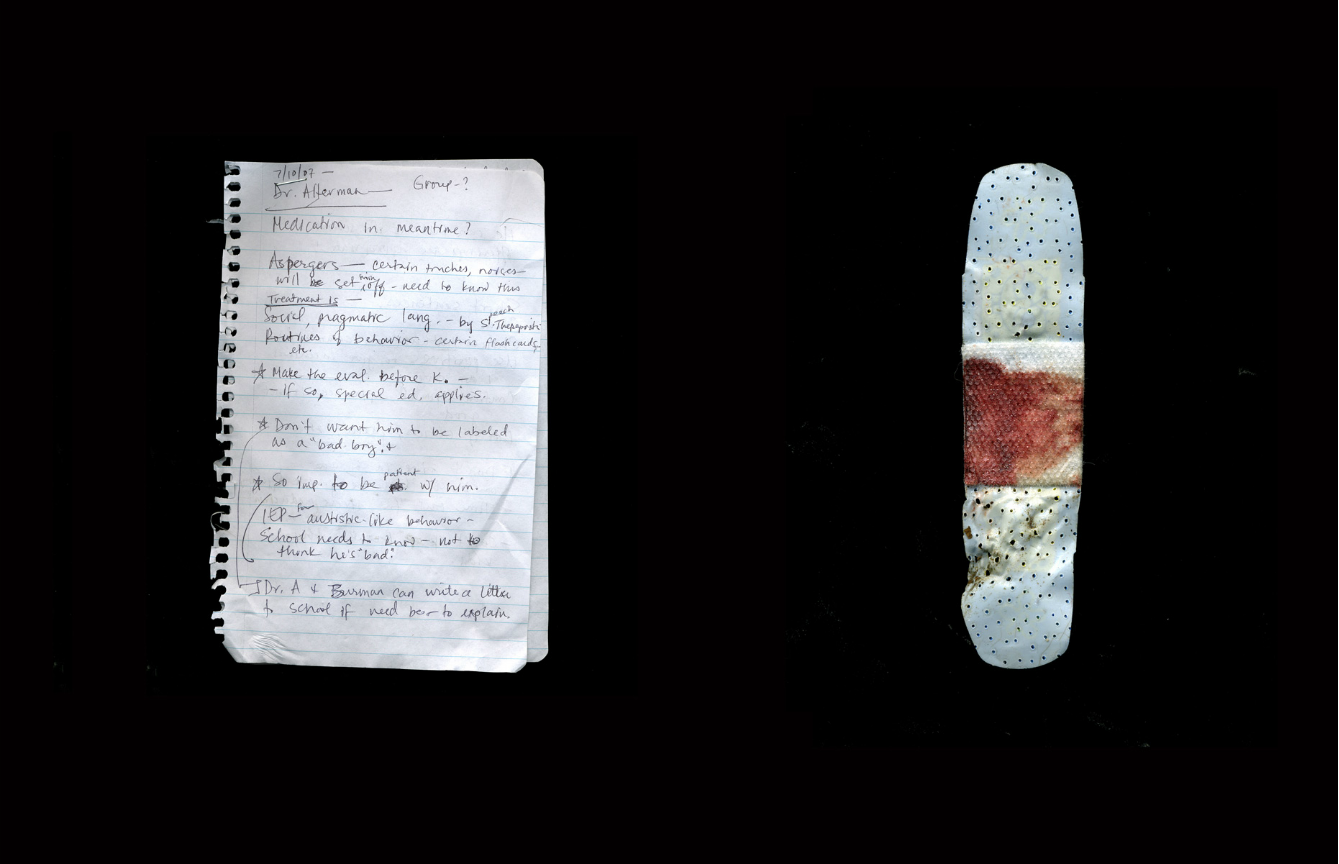 7/10/07 —
Dr. Afferman — Group-?
Medication in meantime?
Aspergers — certain touches, noises —
will be set him off - need to know this
Treatment is —
Social, pragmatic lang. - by speech
Routines of behavior - certain flashcards,
etc.
☆ Make the eval. before K. —
- if so, special ed. applies.
☆ Don't want him to be labeled
as a "bad boy". +
☆ So imp. to be patient w/ him.
IEP - for austistic-like behavior -
School needs to know - not to
think he's "bad."
Dr. A + Burman can write a letter
to school if need be - to explain.